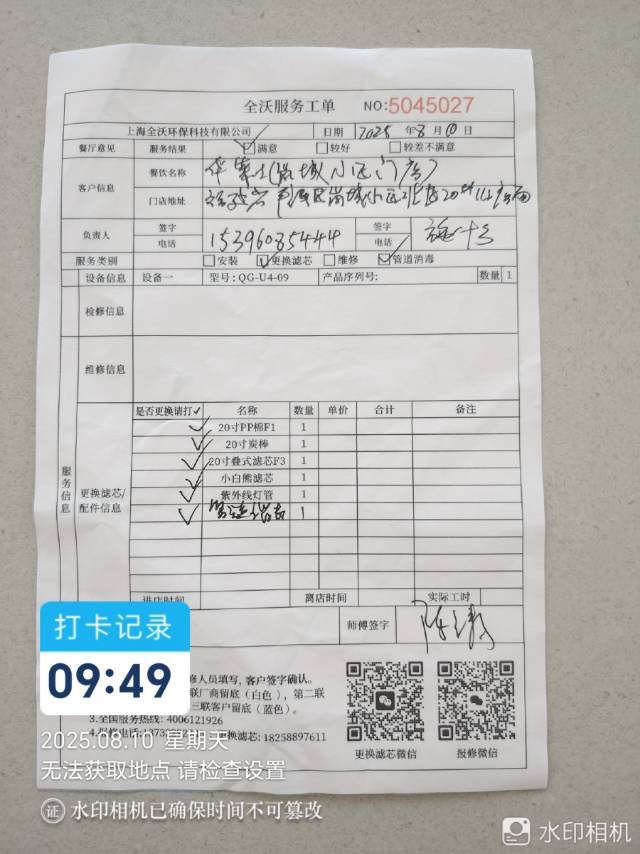 全沃服务工单 NO:5045027
上海全沃环保科技有限公司 日期 2025 年 8 月 10 日
餐厅意见 服务结果 满意 较好 较差不满意
客户信息 餐饮名称 华莱士(
门店地址
负责人 签字 电话 15396085444 签字 电话
服务类别 安装 更换滤芯 维修 管道消毒
设备信息 设备一 型号: QG-U4-09 产品序列号: 数量 1
检修信息
维修信息
服务信息
更换滤芯/配件信息
是否更换请打✓ 名称 数量 单价 合计 备注
✓ 20寸PP棉F1 1
✓ 20寸炭棒 1
✓ 20寸叠式滤芯F3 1
✓ 小白熊滤芯 1
✓ 紫外线灯管 1
✓ 管道消毒 1
进店时间 离店时间 实际工时
师傅签字
修人员填写, 客户签字确认。
联厂商留底 (白色), 第二联
三联客户留底 (蓝色)。
3.全国服务热线: 4006121926
更换滤芯: 18258897611
更换滤芯微信 报修微信
打卡记录
09:49
2025.08.10 星期天
无法获取地点 请检查设置
证 水印相机已确保时间不可篡改
水印相机